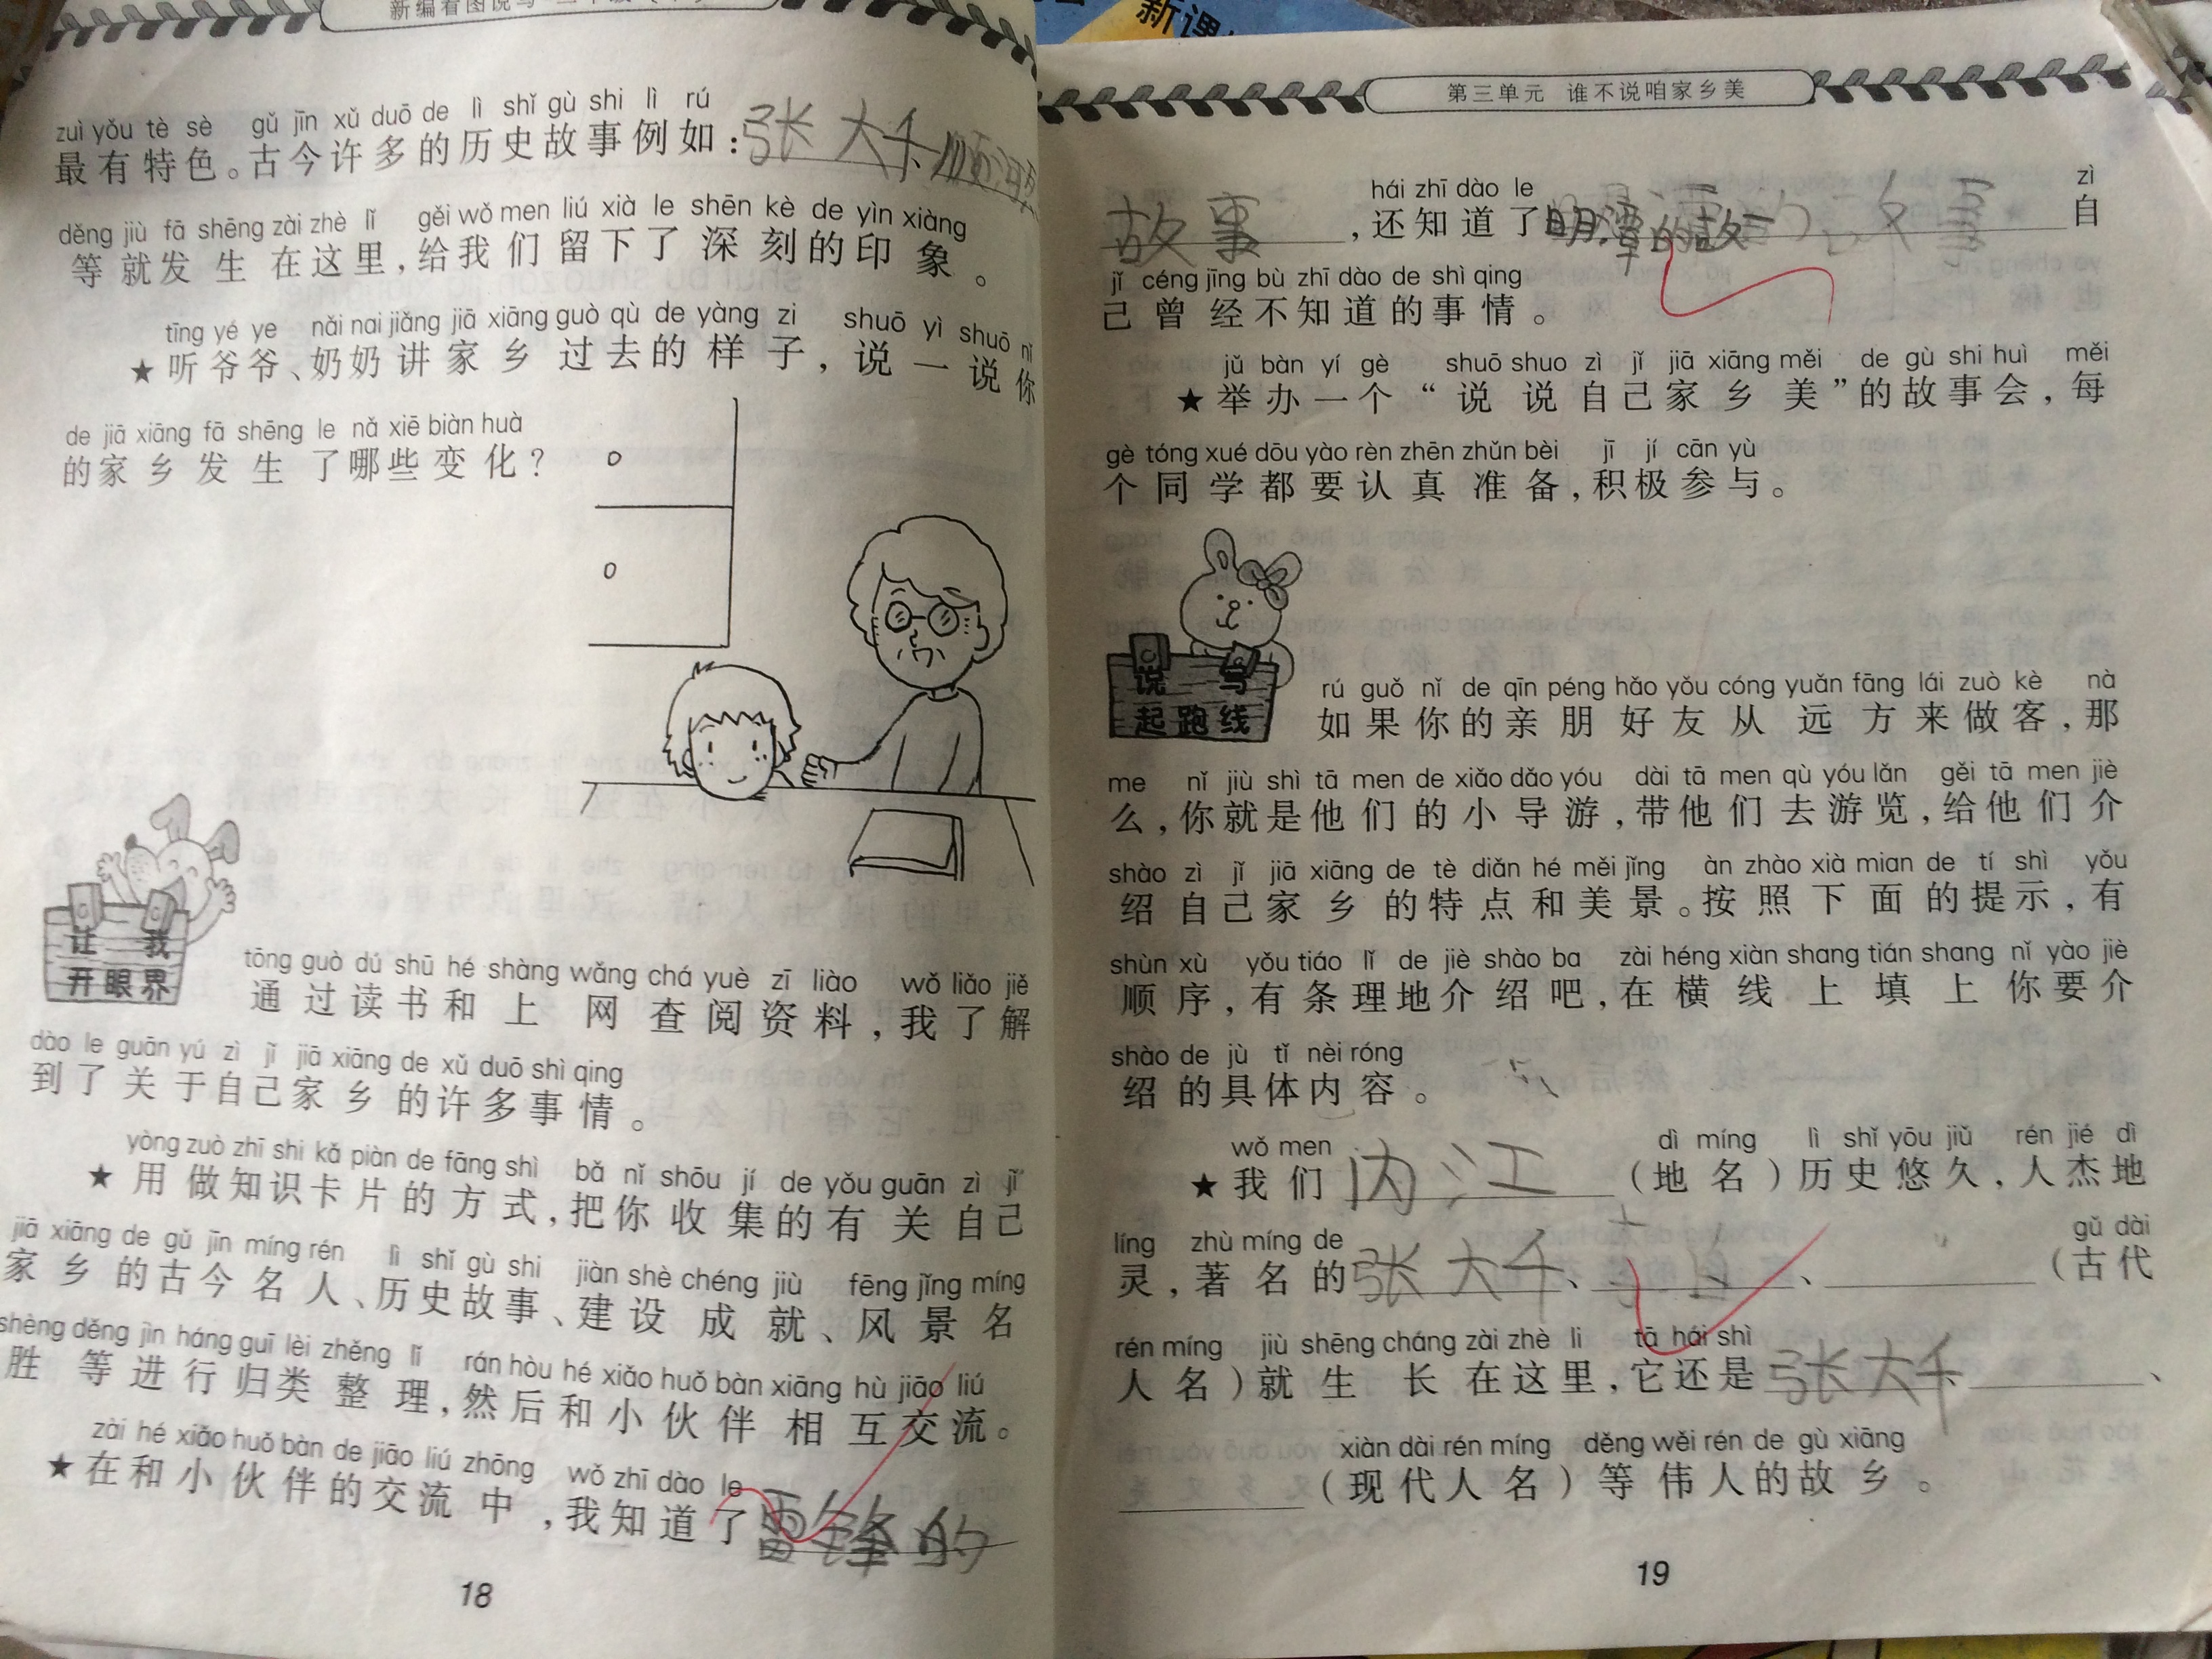 新编看图说写
zuì yǒu tè sè gǔ jīn xǔ duō de lì shǐ gù shi lì rú
最有特色。古今许多的历史故事例如：张大千、
děng jiù fā shēng zài zhè lǐ gěi wǒ men liú xià le shēn kè de yìn xiàng
等就发生在这里，给我们留下了深刻的印象。
tīng yé ye nǎi nai jiǎng jiā xiāng guò qù de yàng zi shuō yì shuō nǐ
★听爷爷、奶奶讲家乡过去的样子，说一说你
de jiā xiāng fā shēng le nǎ xiē biàn huà
的家乡发生了哪些变化？
让我
开眼界
tōng guò dú shū hé shàng wǎng chá yuè zī liào wǒ liǎo jiě
通过读书和上网查阅资料，我了解
dào le guān yú zì jǐ jiā xiāng de xǔ duō shì qing
到了关于自己家乡的许多事情。
yòng zuò zhī shi kǎ piàn de fāng shì bǎ nǐ shōu jí de yǒu guān zì jǐ
★用做知识卡片的方式，把你收集的有关自己
jiā xiāng de gǔ jīn míng rén lì shǐ gù shi jiàn shè chéng jiù fēng jǐng míng
家乡的古今名人、历史故事、建设成就、风景名
shèng děng jìn háng guī lèi zhěng lǐ rán hòu hé xiǎo huǒ bàn xiāng hù jiāo liú
胜等进行归类整理，然后和小伙伴相互交流。
zài hé xiǎo huǒ bàn de jiāo liú zhōng wǒ zhī dào le
★在和小伙伴的交流中，我知道了雷锋的
18
新课
第三单元 谁不说咱家乡美
hái zhī dào le zì
故事，还知道了明潭的故事自
jǐ céng jīng bù zhī dào de shì qing
己曾经不知道的事情。
jǔ bàn yí gè shuō shuo zì jǐ jiā xiāng měi de gù shi huì měi
★举办一个“说说自己家乡美”的故事会，每
gè tóng xué dōu yào rèn zhēn zhǔn bèi jī jí cān yù
个同学都要认真准备，积极参与。
说写
起跑线
rú guǒ nǐ de qīn péng hǎo yǒu cóng yuǎn fāng lái zuò kè nà
如果你的亲朋好友从远方来做客，那
me nǐ jiù shì tā men de xiǎo dǎo yóu dài tā men qù yóu lǎn gěi tā men jiè
么，你就是他们的小导游，带他们去游览，给他们介
shào zì jǐ jiā xiāng de tè diǎn hé měi jǐng àn zhào xià mian de tí shì yǒu
绍自己家乡的特点和美景。按照下面的提示，有
shùn xù yǒu tiáo lǐ de jiè shào ba zài héng xiàn shang tián shang nǐ yào jiè
顺序，有条理地介绍吧，在横线上填上你要介
shào de jù tǐ nèi róng
绍的具体内容。
wǒ men dì míng lì shǐ yōu jiǔ rén jié dì
★我们内江（地名）历史悠久，人杰地
líng zhù míng de gǔ dài
灵，著名的张大千、、（古代
rén míng jiù shēng cháng zài zhè li tā hái shì
人名）就生长在这里，它还是张大千、、
xiàn dài rén míng děng wěi rén de gù xiāng
（现代人名）等伟人的故乡。
19